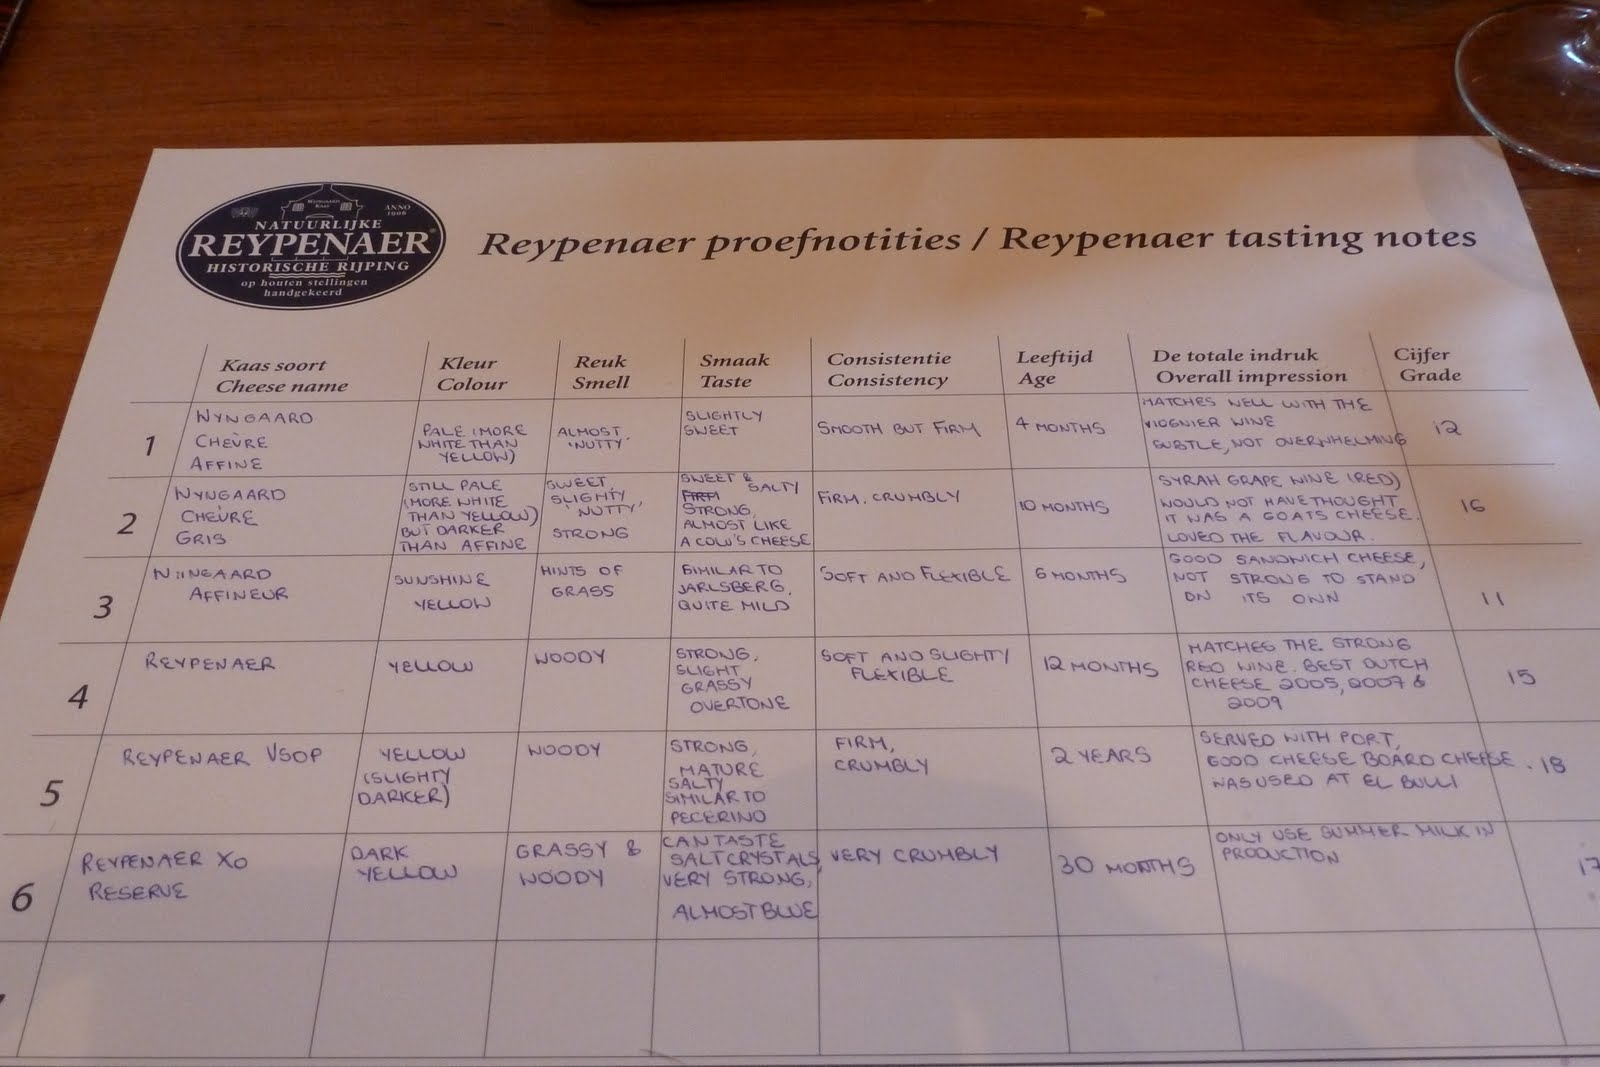 WIJNGAARD
KAAS
ANNO
1906
NATUURLIJKE
REYPENAER
HISTORISCHE RIJPING
op houten stellingen
handgekeerd
Reypenaer proefnotities / Reypenaer tasting notes
Kaas soort
Cheese name
Kleur
Colour
Reuk
Smell
Smaak
Taste
Consistentie
Consistency
Leeftijd
Age
De totale indruk
Overall impression
Cijfer
Grade
1
WYNGAARD
CHEVRE
AFFINE
PALE (MORE
WHITE THAN
YELLOW)
ALMOST
'NUTTY'
SLIGHTLY
SWEET
SMOOTH BUT FIRM
4 MONTHS
MATCHES WELL WITH THE
VIOGNIER WINE
SUBTLE, NOT OVERWHELMING
12
2
WYNGAARD
CHEVRE
GRIS
STILL PALE
(MORE WHITE
THAN YELLOW)
BUT DARKER
THAN AFFINE
SWEET,
SLIGHTY
'NUTTY'
STRONG
SWEET &
SALTY
FIRM
STRONG,
ALMOST LIKE
A COW'S CHEESE
FIRM, CRUMBLY
10 MONTHS
SYRAH GRAPE WINE (RED)
WOULD NOT HAVE THOUGHT
IT WAS A GOATS CHEESE.
LOVED THE FLAVOUR.
16
3
WIINGAARD
AFFINEUR
SUNSHINE
YELLOW
HINTS OF
GRASS
SIMILAR TO
JARLSBERG,
QUITE MILD
SOFT AND FLEXIBLE
6 MONTHS
GOOD SANDWICH CHEESE,
NOT STRONG TO STAND
ON ITS OWN
11
4
REYPENAER
YELLOW
WOODY
STRONG,
SLIGHT
GRASSY
OVERTONE
SOFT AND SLIGHTY
FLEXIBLE
12 MONTHS
MATCHES THE STRONG
RED WINE. BEST DUTCH
CHEESE 2005, 2007 &
2009
15
5
REYPENAER VSOP
YELLOW
(SLIGHTY
DARKER)
WOODY
STRONG,
MATURE
SALTY
SIMILAR TO
PECERINO
FIRM,
CRUMBLY
2 YEARS
SERVED WITH PORT,
GOOD CHEESE BOARD CHEESE.
WAS USED AT EL BULLI
18
6
REYPENAER XO
RESERVE
DARK
YELLOW
GRASSY &
WOODY
CAN TASTE
SALT CRYSTALS,
VERY STRONG,
ALMOST BLUE
VERY CRUMBLY
30 MONTHS
ONLY USE SUMMER MILK IN
PRODUCTION
17